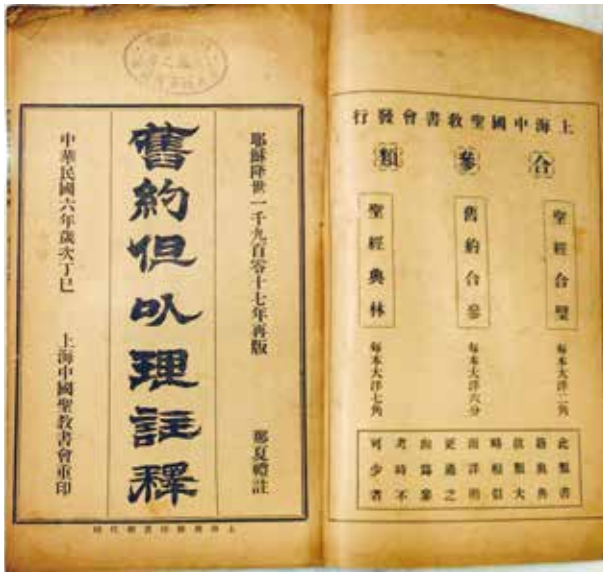 上海中國聖教書會發行
合參類
聖經合璧 每本大洋二角
舊約合參 每本大洋六分
聖經典林 每本大洋七角
此類書
籍與典
故類大
略相似
而詳明
更過之
洵為參
考時不
可少者
耶穌降世一千九百零十七年再版 那夏禮註
舊約但以理註釋
中華民國六年歲次丁巳 上海中國聖教書會重印